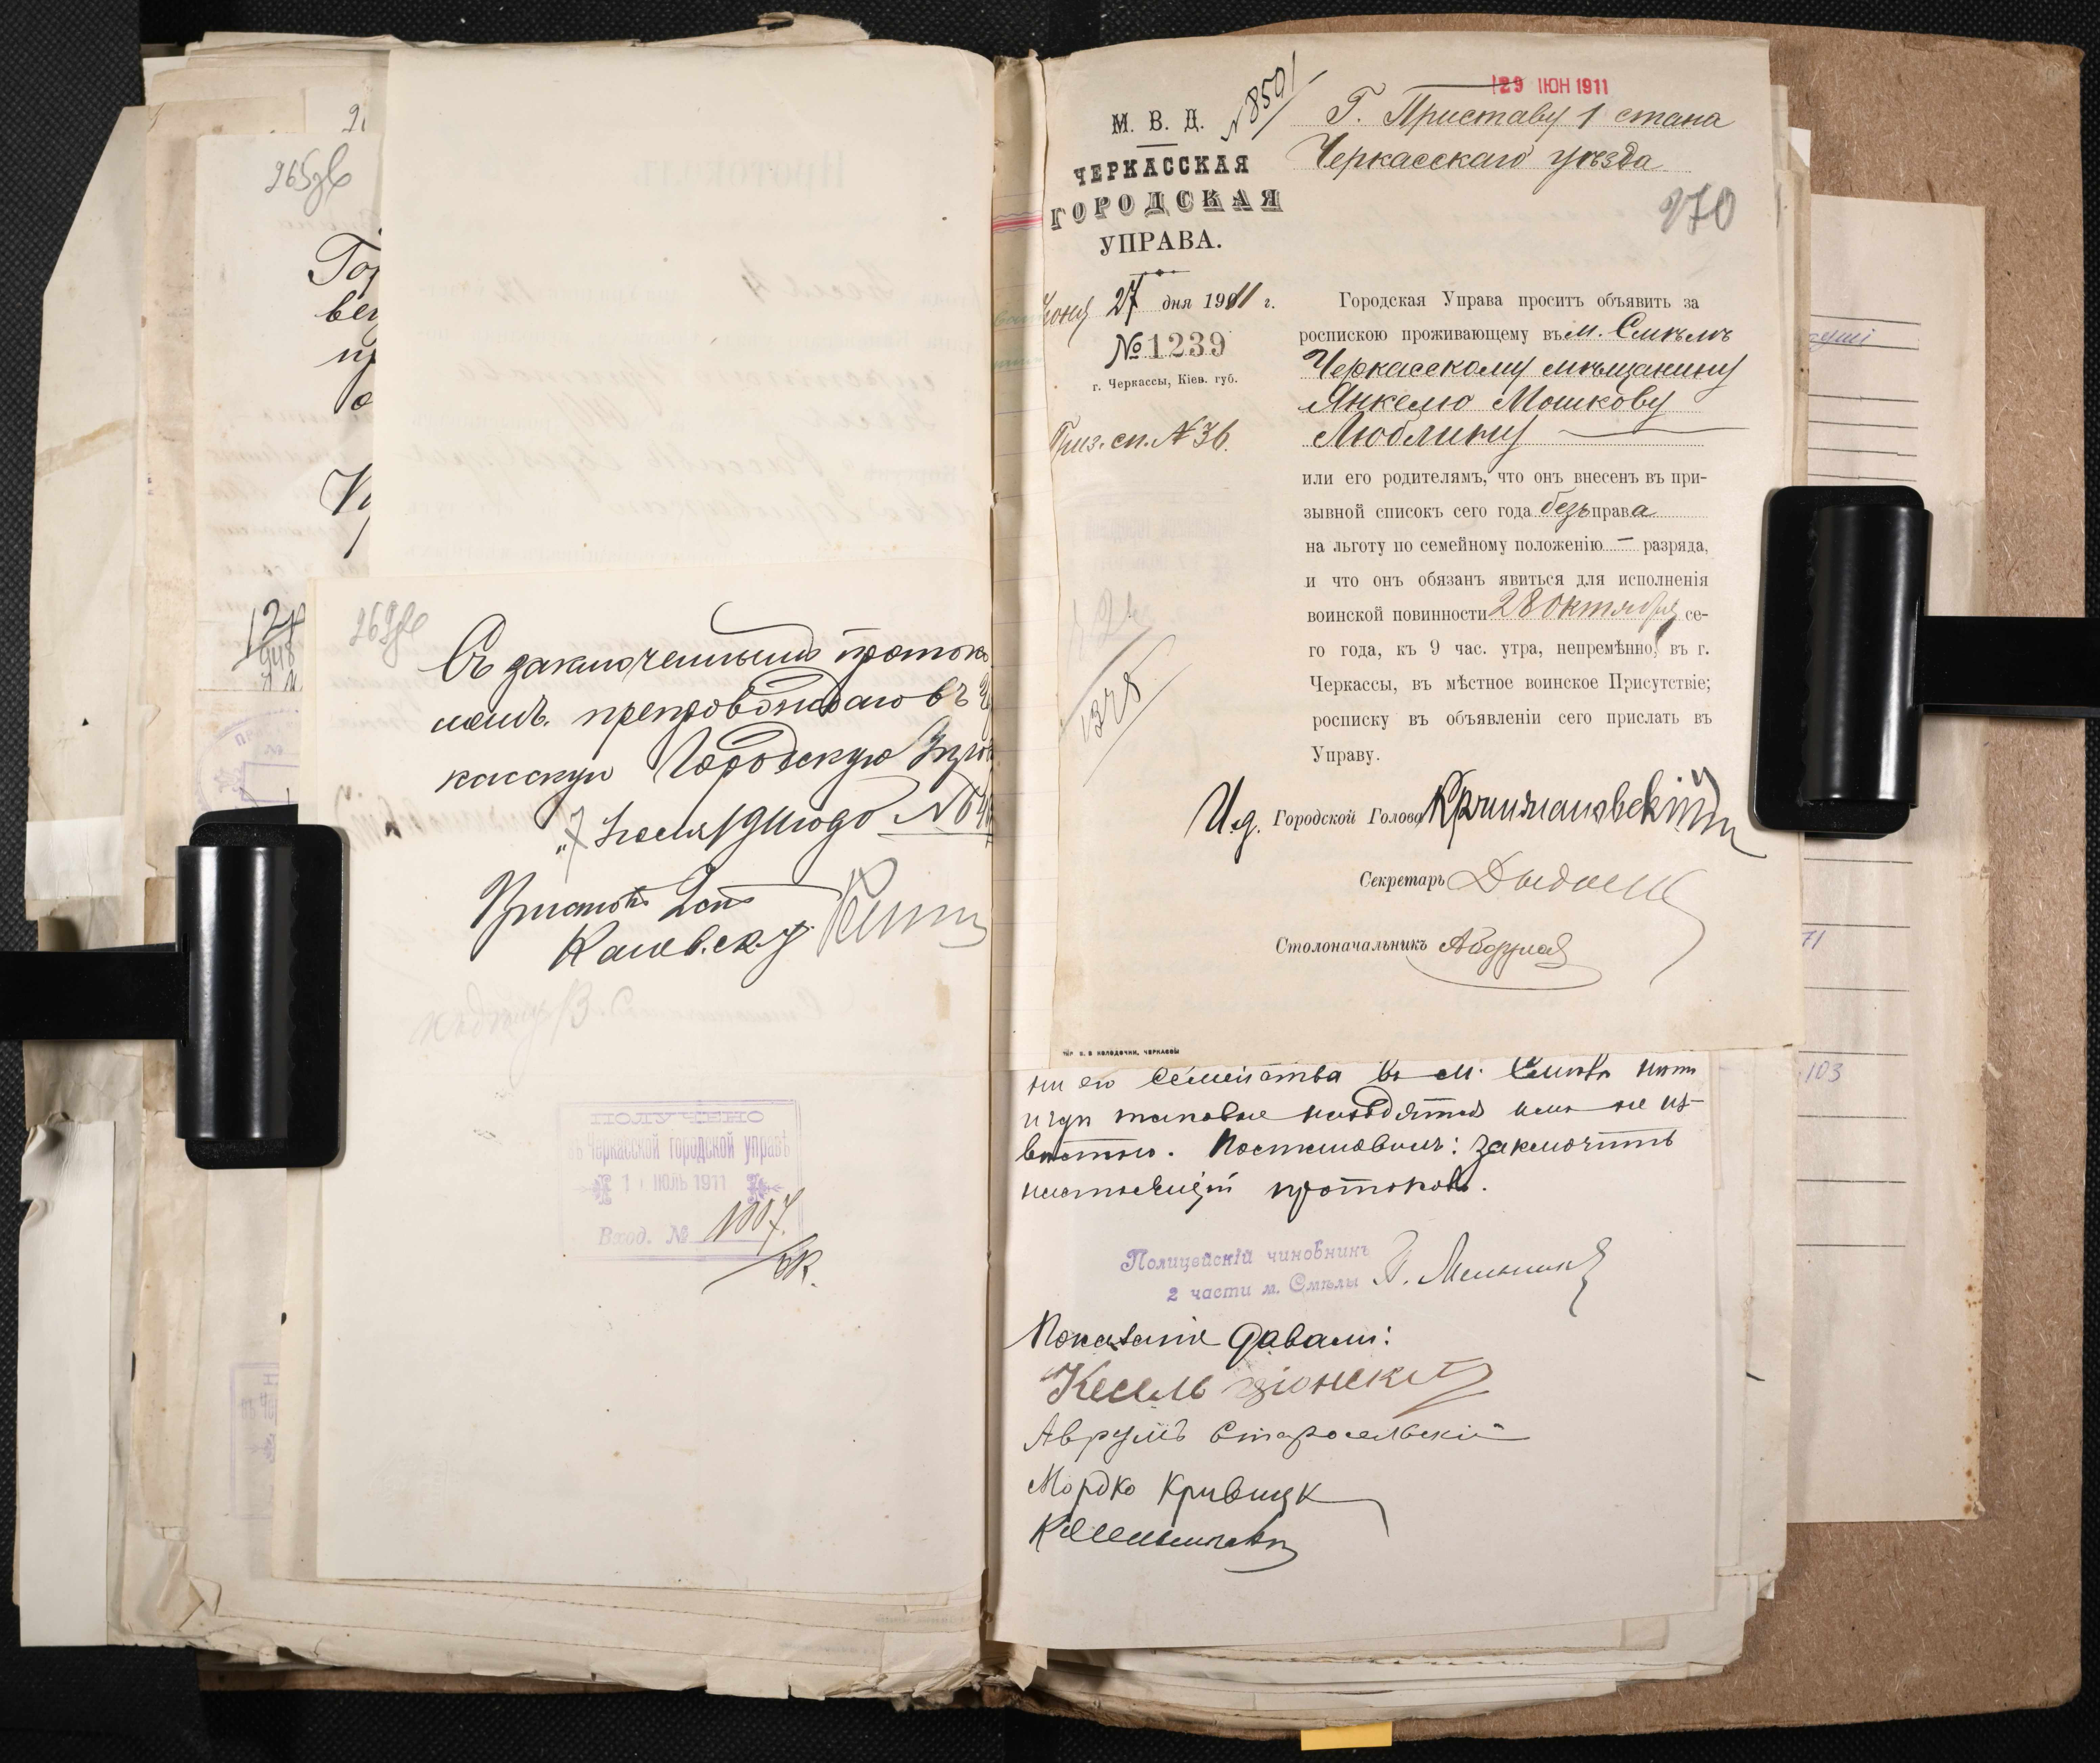 265зв
269зв
Съ заключеннымъ протоко
ломъ препровождаю въ
касскую Городскую Упра
"7 Іюля 1911 года №
Приставъ 2 ст.
Каневск. у.
ПОЛУЧЕНО
въ Черкасской городской управѣ
1 ІЮЛЬ 1911
Вход. №
29 ІЮН 1911
№ 8501
Г. Приставу 1 стана
Черкасскаго уѣзда
270
М. В. Д.
ЧЕРКАССКАЯ
ГОРОДСКАЯ
УПРАВА.
Іюня 27 дня 1911 г.
№ 1239
г. Черкассы, Кіев. губ.
Приз. сп. № 36.
Городская Управа проситъ объявить за
роспискою проживающему въ м. Смѣлѣ
Черкасскому мѣщанину
Янкелю Мошкову
Люблину
или его родителямъ, что онъ внесенъ въ при-
зывной списокъ сего года безъ права
на льготу по семейному положенію — разряда,
и что онъ обязанъ явиться для исполненія
воинской повинности 28 октября се-
го года, къ 9 час. утра, непремѣнно, въ г.
Черкассы, въ мѣстное воинское Присутствіе;
росписку въ объявленіи сего прислать въ
Управу.
И.д. Городской Голова
Секретарь
Столоначальникъ
ни его семейства въ м. Смѣлѣ нѣтъ
и гдѣ таковые находятся имъ не из-
вѣстно. Постановилъ: заключить
настоящій протоколъ.
Полицейскій чиновникъ
2 части м. Смѣлы
Показаніе давали:
Аврумъ Старосельскій
Мордко